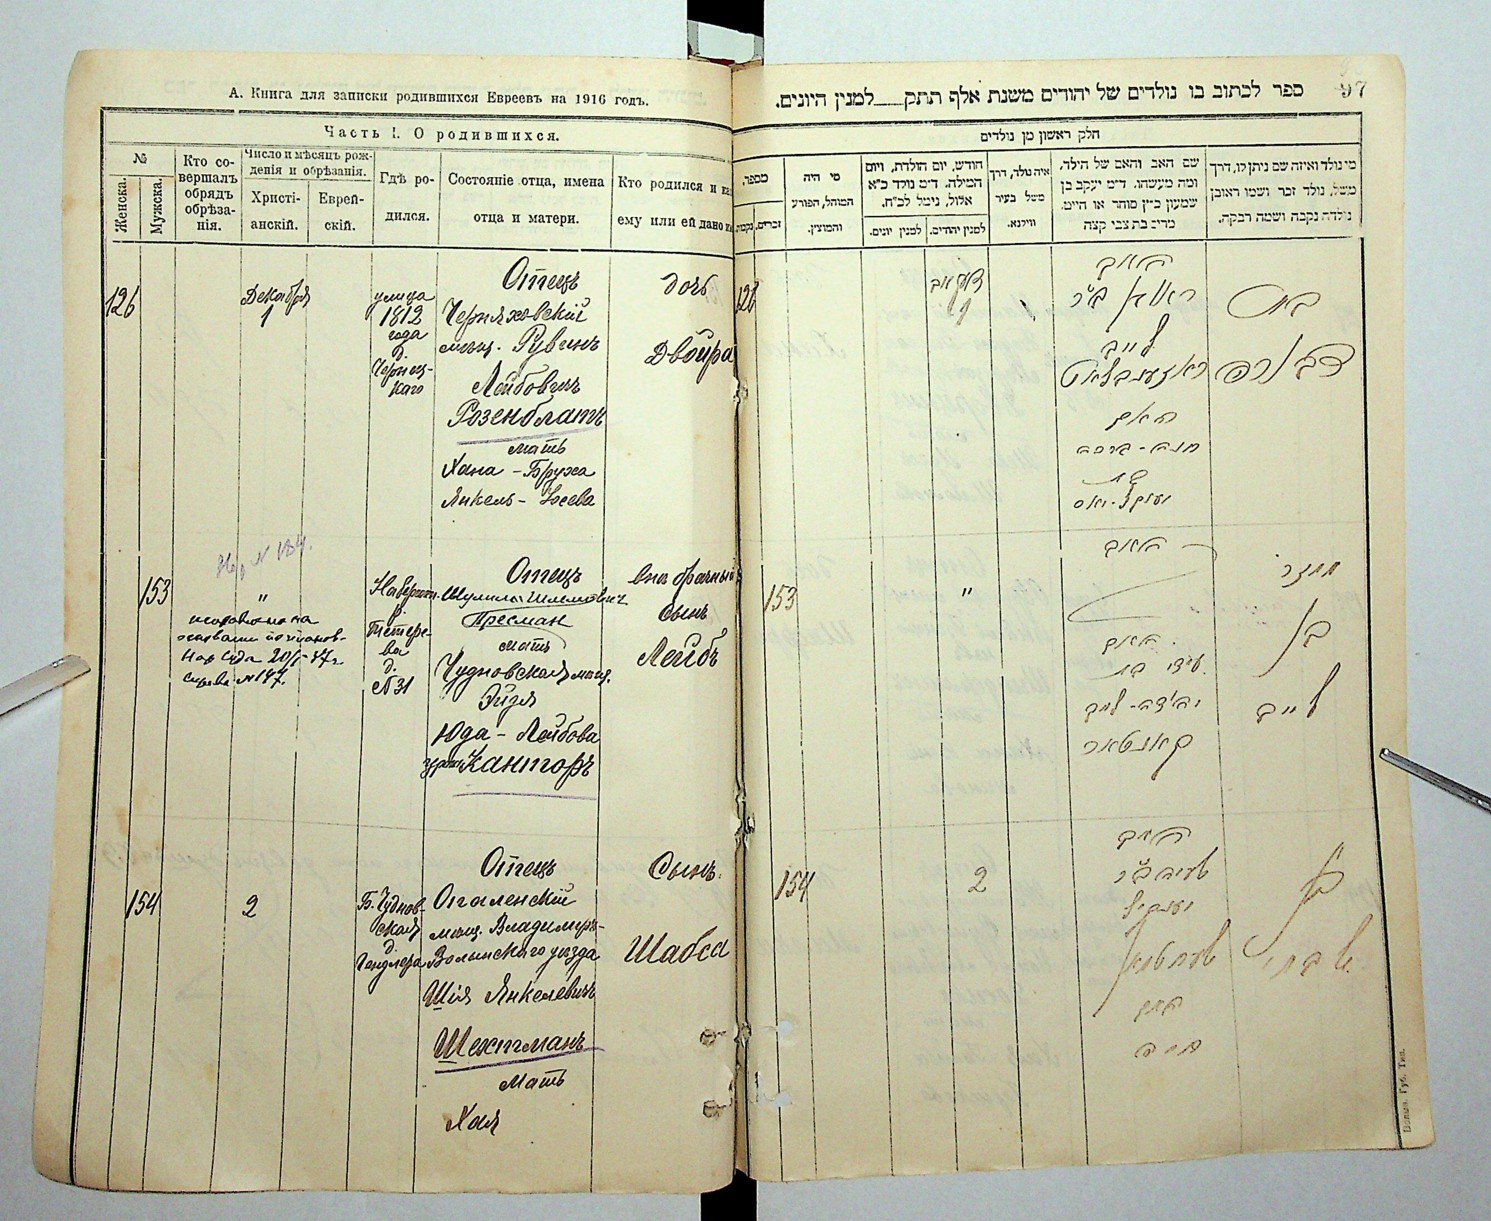 А. Книга для записки родившихся Евреевъ на 1916 годъ.
Часть I. О родившихся.
№
Женска.
Мужска.
Кто со-
вершалъ
обрядъ
обрѣза-
нія.
Число и мѣсяцъ рож-
денія и обрѣзанія.
Христі-
анскій.
Еврей-
скій.
Гдѣ ро-
дился.
Состояніе отца, имена
отца и матери.
Кто родился и
ему или ей дано
126
Декабря
1
улица
1812
года
д.
Чернец-
каго
Отецъ
Черняховскій
мѣщ. Рувинъ
Лейбовичъ
Розенблатъ
мать
Хана - Бруха
Янкель -
дочь
Двойра
153
"
исправлено на
20/I-47г
№ 31
Отецъ
Шулимъ Шлемович
Пресман
мать
Чудновская мѣщ.
Эйдля
Юда - Лейбова
Канторъ
внѣбрачный
сынъ
Лейбъ
154
2
Б. Чуднов-
ская
д.
Гендлера
Отецъ
мѣщ. Владиміръ-
Волынскаго уѣзда
Шія Янкелевичъ
Шехтманъ
Мать
Хая
Сынъ
Шабса
97
ספר לכתוב בו נולדים של יהודים משנת אלף תתק___למנין היונים.
חלק ראשון מן נולדים
מספר.
זכרים.
נקבות
מי היה
המוהל, הפורע
והמוצץ.
חודש, יום הולדת, ויום
המילה. ד״מ נולד כ״א
אלול, נימל לכ״ח.
למנין יונים.
למנין יהודים.
איה נולד, דרך
משל בעיר
ווילנא.
שם האב והאם של הילד.
ומה מעשהו. ד״מ יעקב בן
שמעון כ״ץ סוחר או חייט.
מרים בת צבי קצה
מי נולד ואיזה שם ניתן לו, דרך
משל, נולד זכר ושמו ראובן
נולדה נקבה ושמה רבקה.
126
1
האב
לייב
ראזענבלאט
האם
חנה - ברכה
בת
בת
דבורה
153
"
האב
האם
יהודה - לייב
קאנטאר
ממזר
בן
לייב
154
2
האב
שעכטמאן
האם
חיה
בן
שבתי
Волын. Губ. Тип.